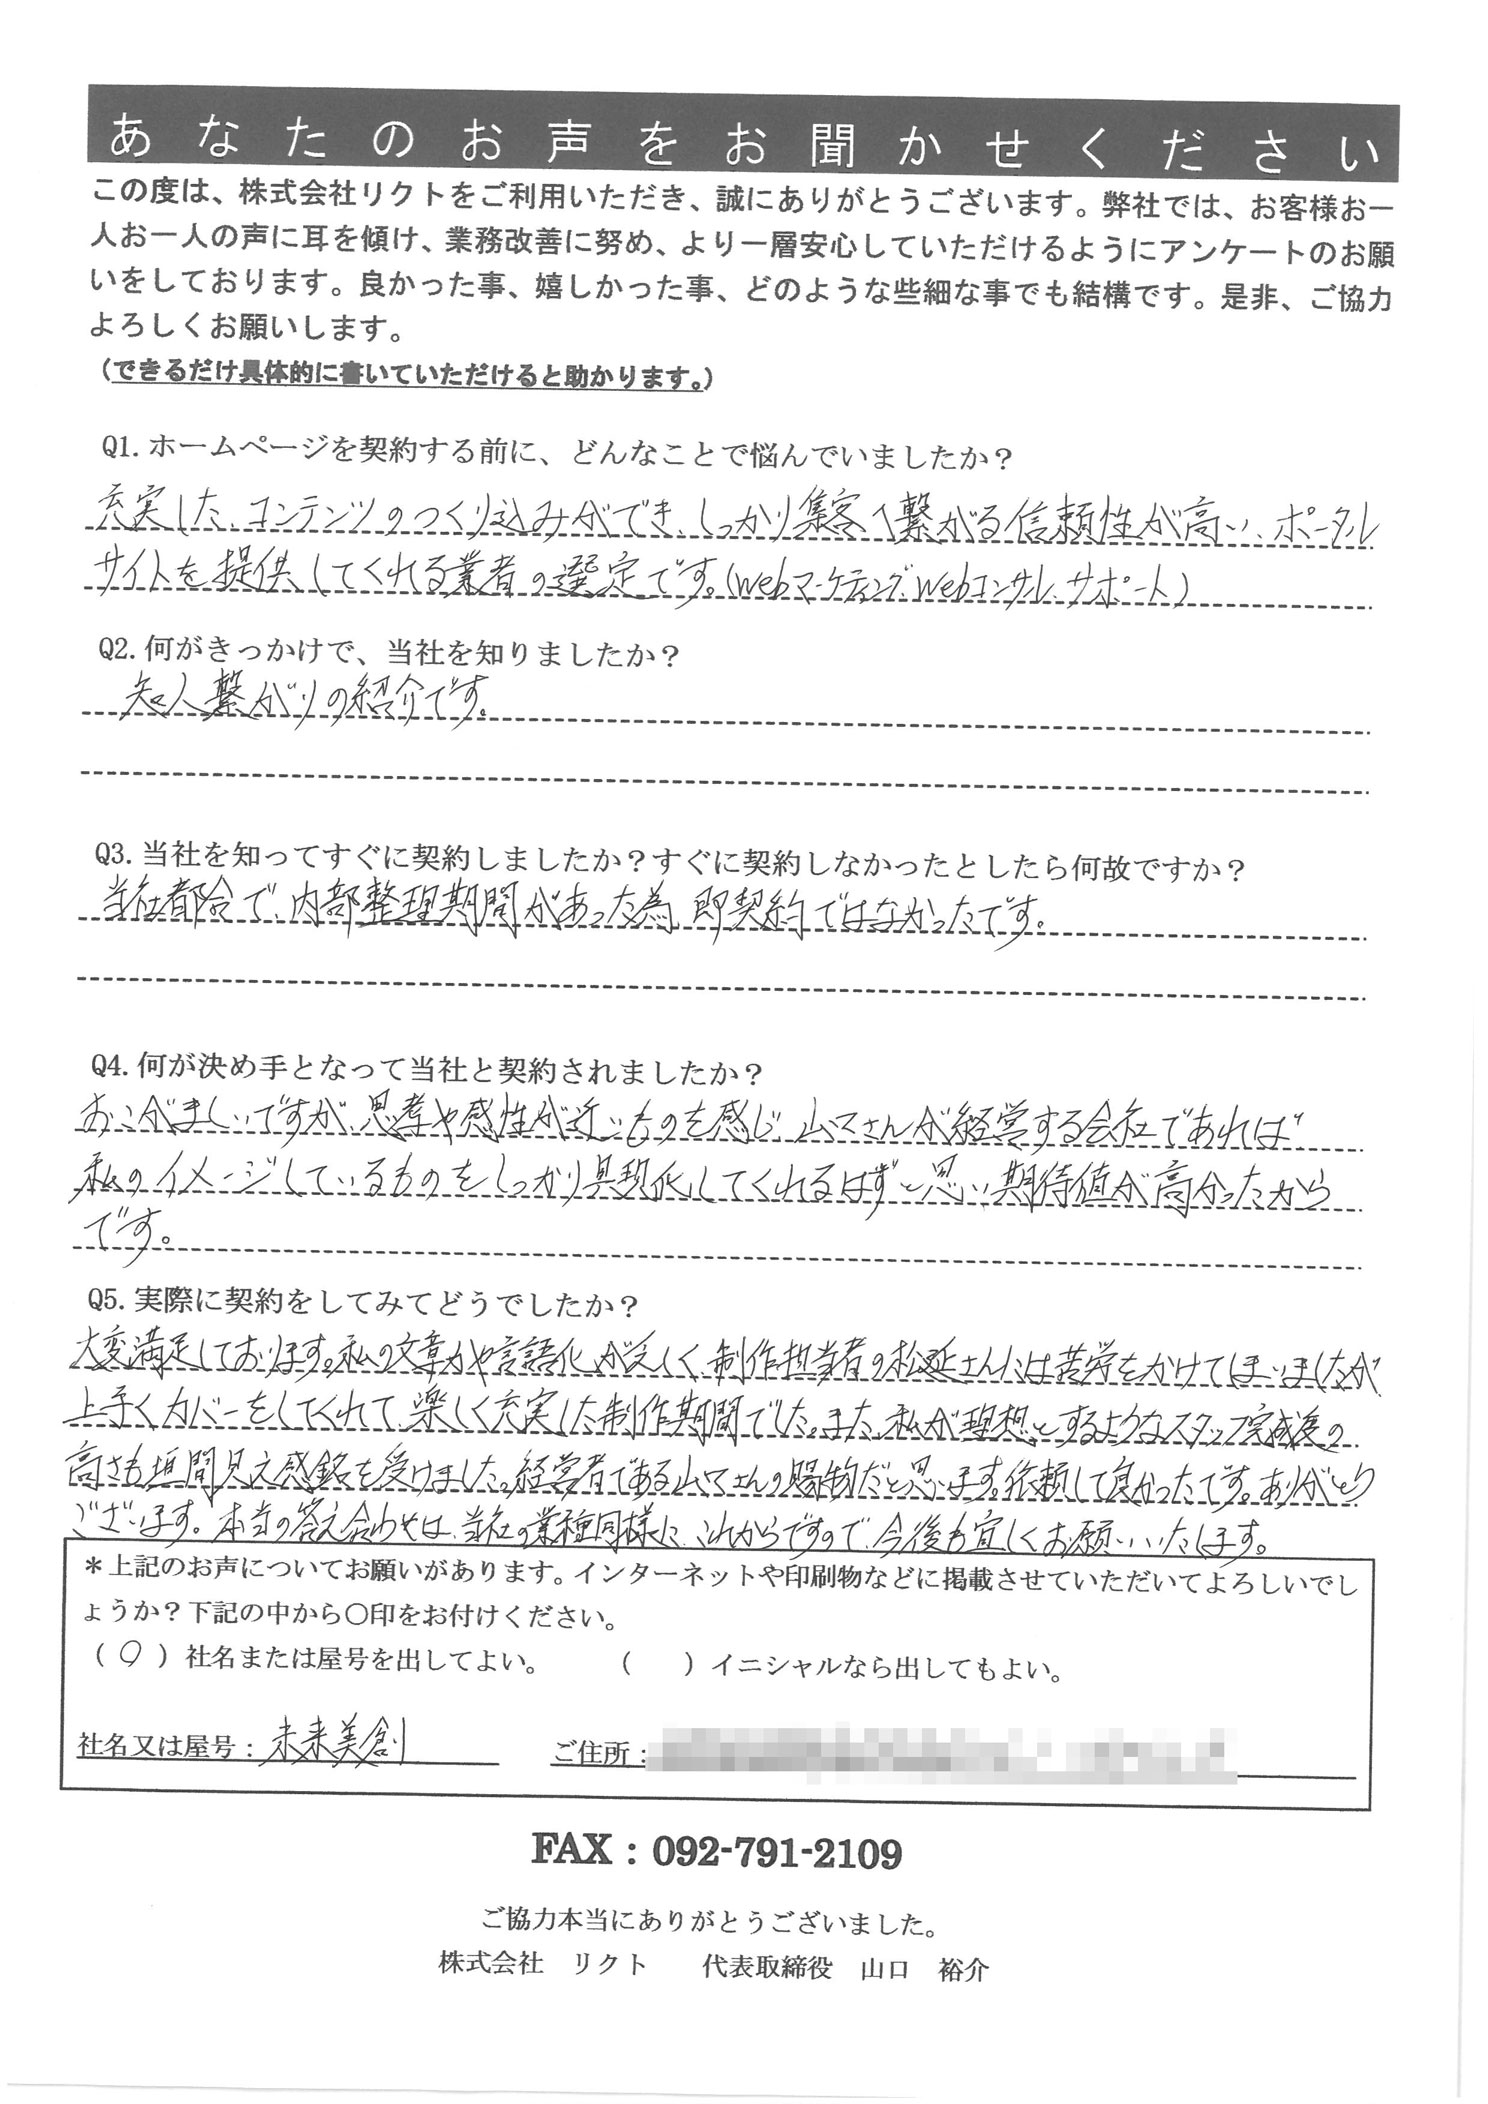 あなたのお声をお聞かせください
この度は、株式会社リクトをご利用いただき、誠にありがとうございます。弊社では、お客様お一
人お一人の声に耳を傾け、業務改善に努め、より一層安心していただけるようにアンケートのお願
いをしております。良かった事、嬉しかった事、どのような些細な事でも結構です。是非、ご協力
よろしくお願いします。
（できるだけ具体的に書いていただけると助かります。）
Q1. ホームページを契約する前に、どんなことで悩んでいましたか？
充実した、コンテンツのつくり込みができ、しっかり集客へ繋がる信頼性が高い、ポータル
サイトを提供してくれる業者の選定です。(Webマーケティング、Webコンサル、サポート)
Q2. 何がきっかけで、当社を知りましたか？
知人繋がりの紹介です。
Q3. 当社を知ってすぐに契約しましたか？すぐに契約しなかったとしたら何故ですか？
当社都合で、内部整理期間があった為、即契約ではなかったです。
Q4. 何が決め手となって当社と契約されましたか？
おこがましいですが、思考や感性が近いものを感じ、山口さんが経営する会社であれば
私のイメージしているものをしっかり具現化してくれるはずと思い、期待値が高かったから
です。
Q5. 実際に契約をしてみてどうでしたか？
大変満足しております。私の文章力や言語化が乏しく、制作担当者の松延さんには苦労をかけてしまいましたが
上手くカバーをしてくれて、楽しく充実した制作期間でした。また、私が理想とするようなスタッフ完成度の
高さも垣間見え感銘を受けました。経営者である山口さんの賜物だと思います。依頼して良かったです。ありがとう
ございます。本当の答え合わせは、当社の業種同様に、これからですので、今後も宜しくお願いいたします。
＊上記のお声についてお願いがあります。インターネットや印刷物などに掲載させていただいてよろしいでし
ょうか？下記の中から〇印をお付けください。
（○）社名または屋号を出してよい。 （ ）イニシャルなら出してもよい。
社名又は屋号：未来美創 ご住所：
FAX：092-791-2109
ご協力本当にありがとうございました。
株式会社 リクト 代表取締役 山口 裕介